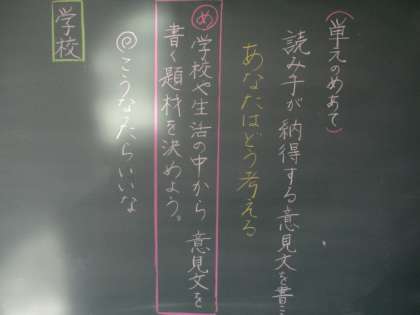 (単元のめあて)
読み手が納得する意見文を書こ
あなたはどう考える
め 学校や生活の中から 意見文を
書く題材を決めよう。
◎こうなったらいいな
学校